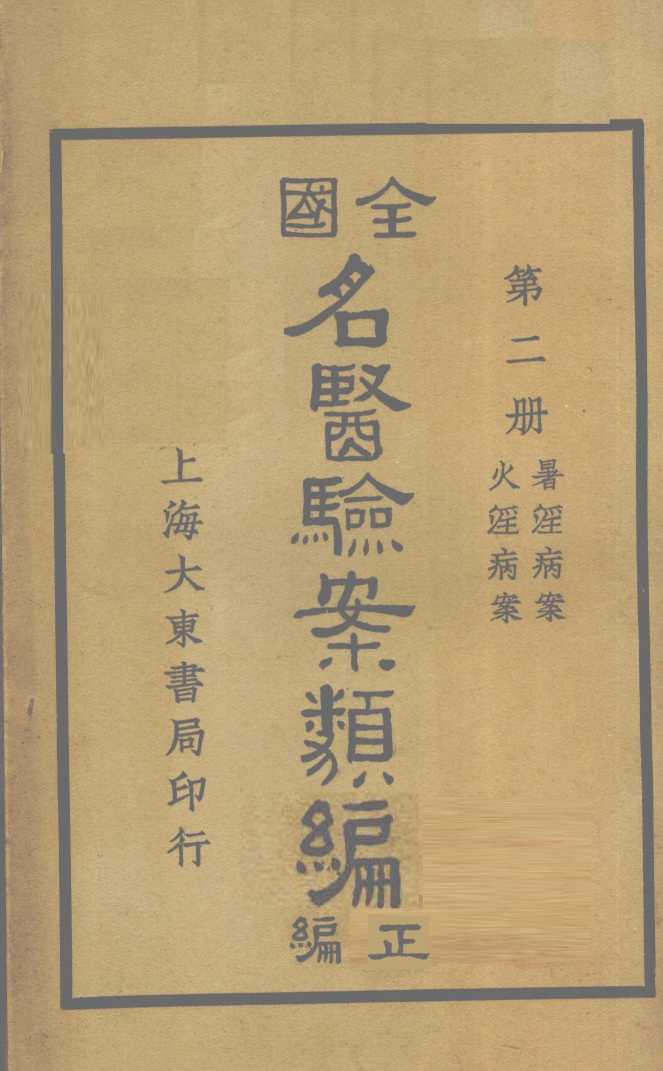 第二册
暑淫病案
火淫病案
全國
名醫驗案類編
正編
上海大東書局印行